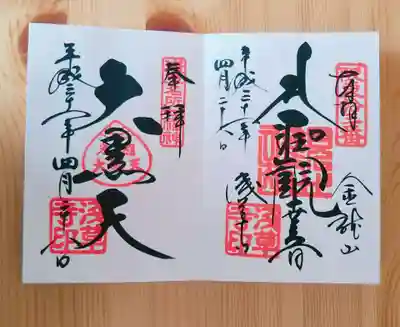 奉拝
金龍山
聖観世音
浅草寺
浅草寺印
平成三十年
四月二十八日
奉拝
大黒天
浅草寺印
平成三十年四月二十八日